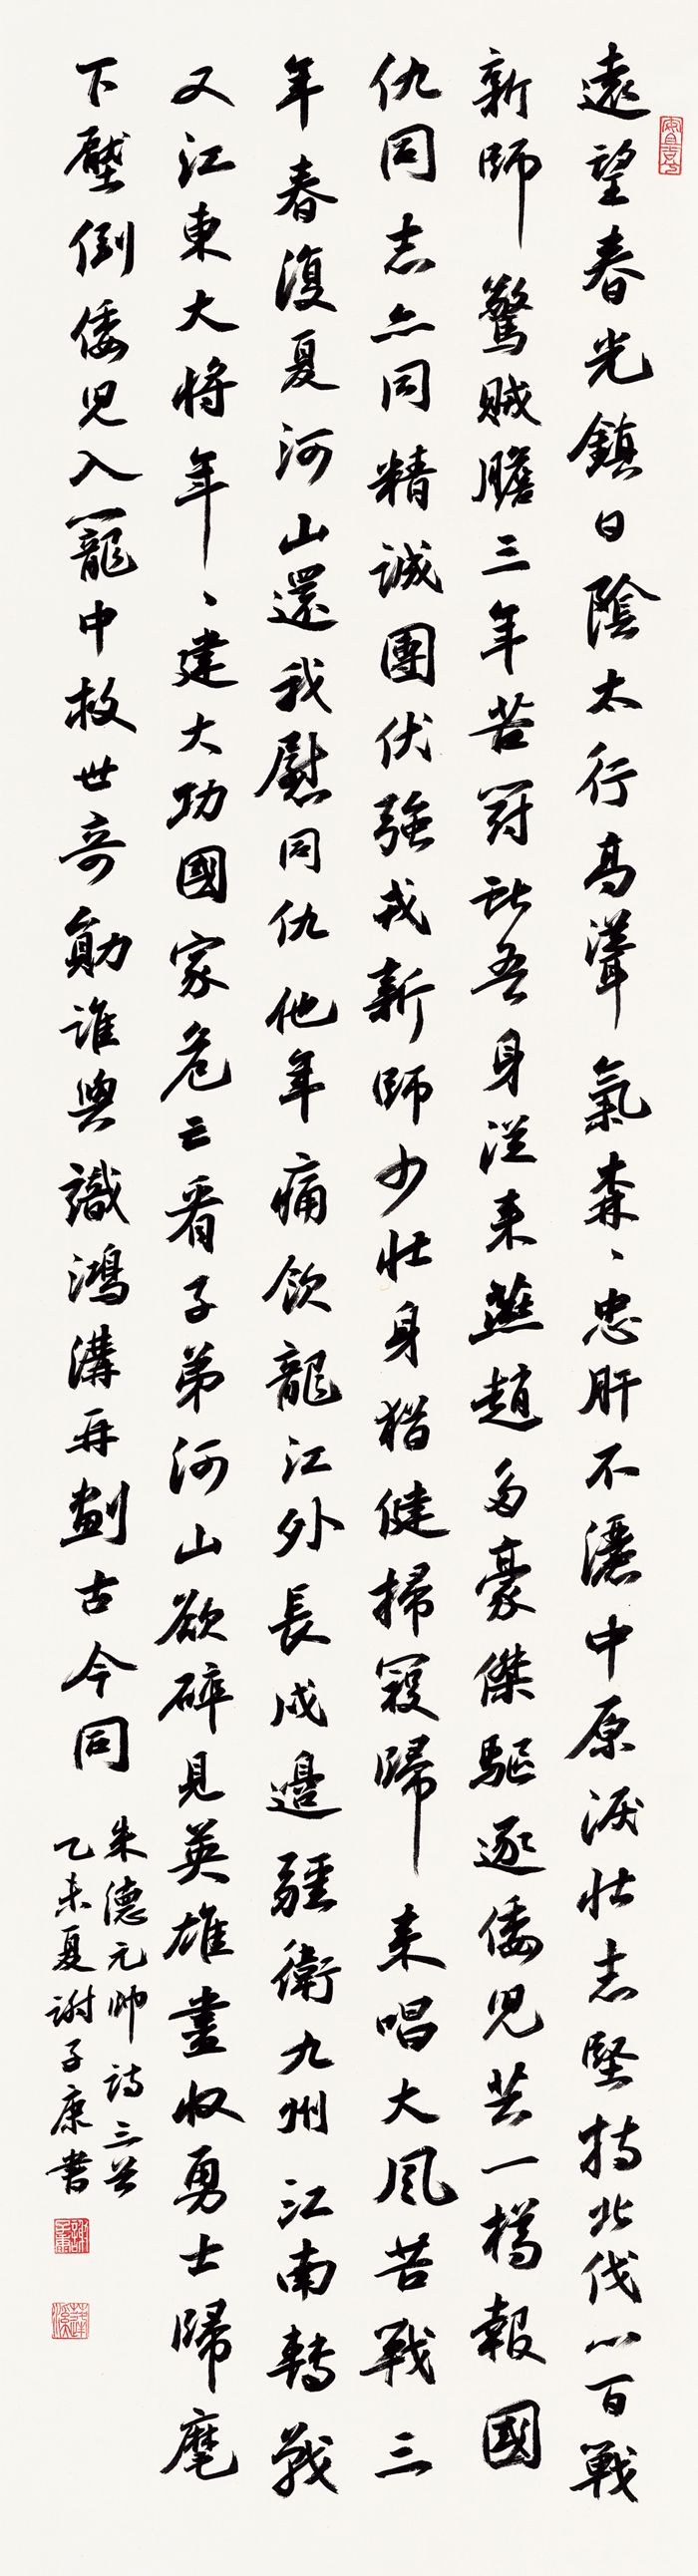 遠望春光鎮日陰太行高聳氣森、忠肝不灑中原淚壯志堅持北伐心百戰
新師驚賊膽三年苦鬥獻吾身從来燕趙多豪傑驅逐倭兒共一樽報國
仇同志亦同精誠團伏強戎新師少壯身猶健掃寇歸来唱大風苦戰三
年春復夏河山還我慰同仇他年痛飲龍江外長戍邊疆衛九州江南轉戰
又江東大將年、建大功國家危亡看子弟河山欲碎見英雄盡收勇士歸麾
下壓倒倭兒入籠中救世奇勛誰與識鴻溝再劃古今同
朱德元帥詩三首
乙未夏謝子康書
謝子康